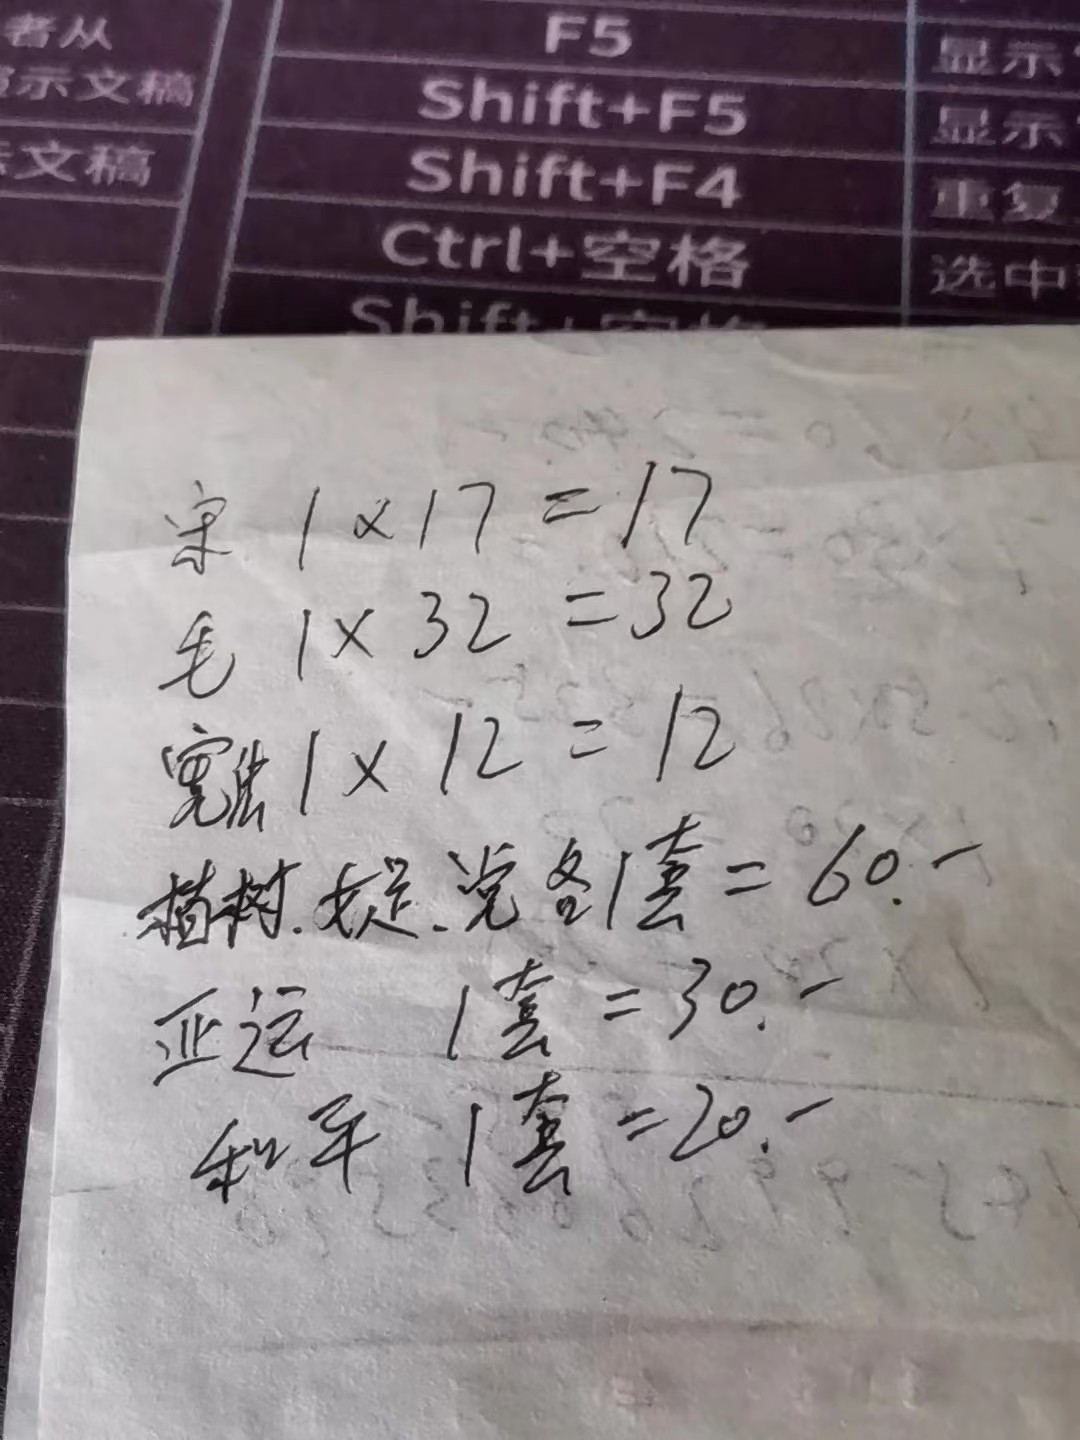 者从
F5
显示
演示文稿
Shift+F5
显示
文稿
Shift+F4
重复
Ctrl+空格
选中
Shift+空格
宋 1×17=17
毛 1×32=32
宪法 1×12=12
植树.女足.党各1套=60.-
亚运 1套=30.-
和平 1套=20.-